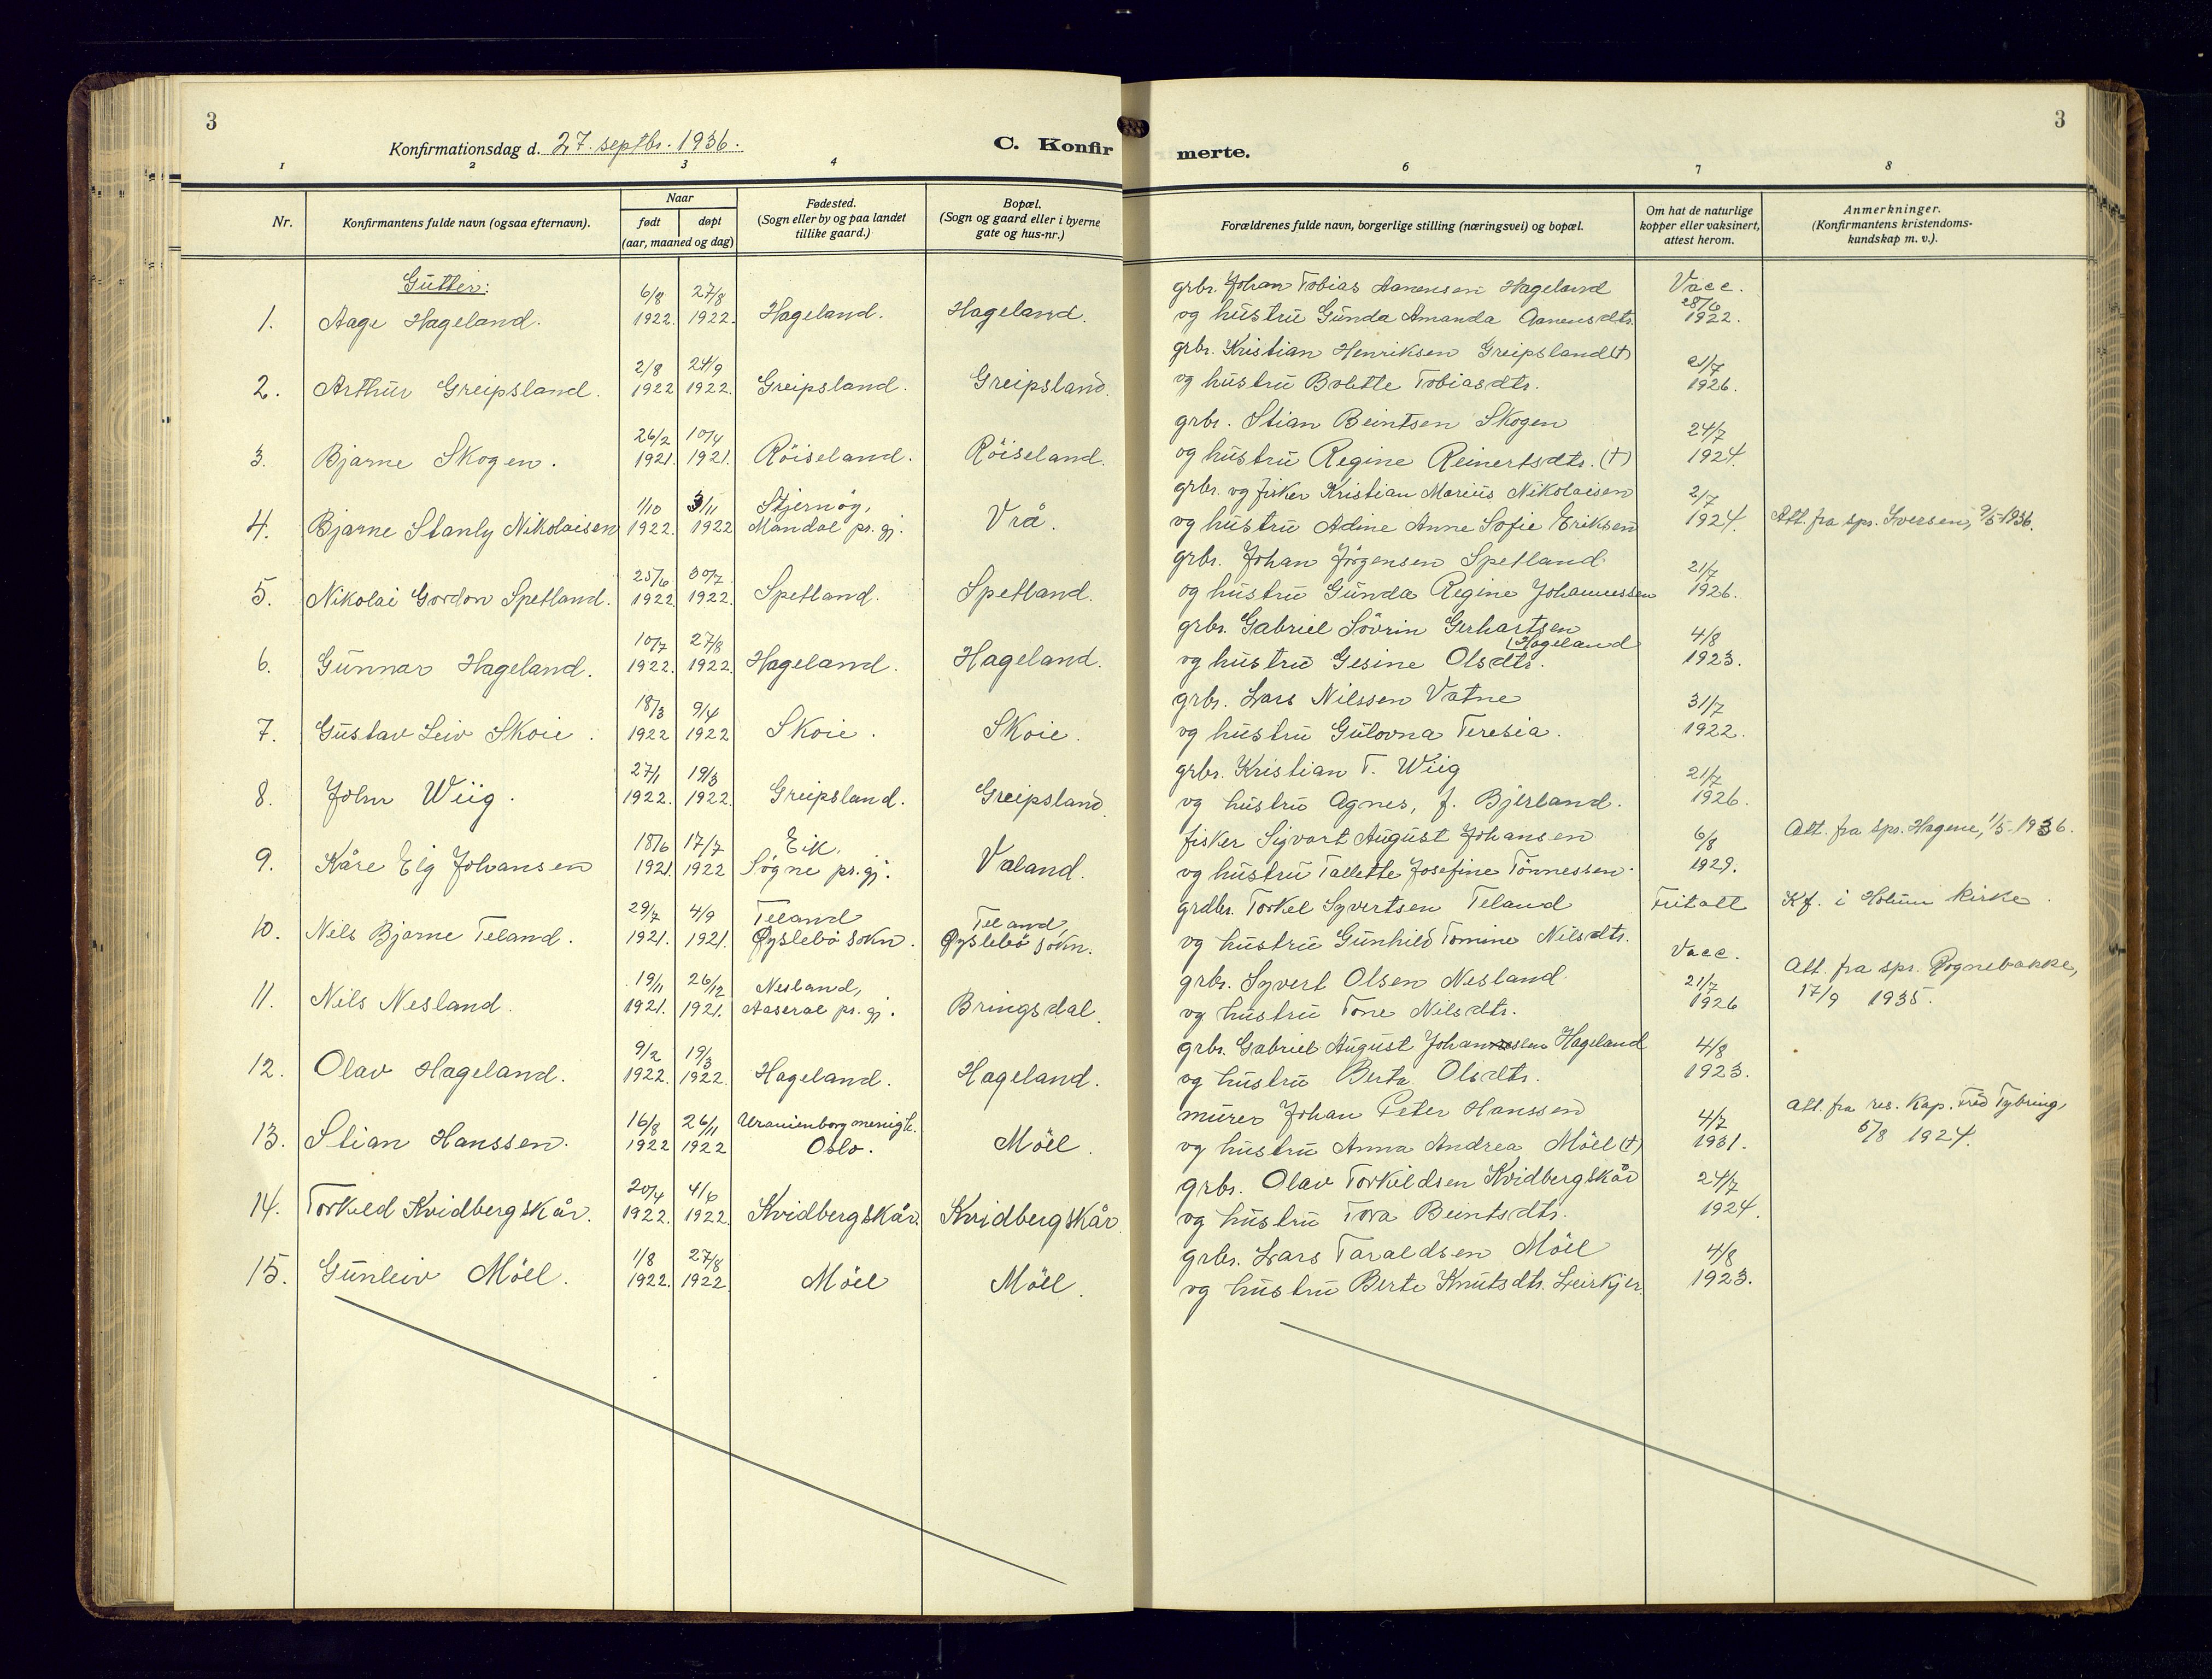 3
3
Konfirmationsdag d. 27. septbr. 1936.
C. Konfirmerte.
1 2 3 4 6 7 8
Nr.
Konfirmantens fulde navn (ogsaa efternavn).
Naar
født døpt
(aar, maaned og dag)
Fødested.
(Sogn eller by og paa landet
tillike gaard.)
Bopæl.
(Sogn og gaard eller i byerne
gate og hus-nr.)
Forældrenes fulde navn, borgerlige stilling (næringsvei) og bopæl.
Om hat de naturlige
kopper eller vaksinert,
attest herom.
Anmerkninger.
(Konfirmantens kristendoms-
kundskap m. v.).
Gutter:
6/8 27/8 grbr. Johan Tobias Aanensen Hageland Vacc.
1. Aage Hageland. 1922. 1922. Hageland. Hageland. og hustru Gunda Amanda Aanensdtr. 28/6 1922.
2/8 24/9 grbr. Kristian Henriksen Greipsland(†) 21/7
2. Arthur Greipsland. 1922 1922. Greipsland. Greipsland. og hustru Bolette Tobiasdtr. 1926.
26/2 10/4 grbr. Stian Beintsen Skogen 24/7
3. Bjarne Skogen. 1921. 1921. Röiseland. Röiseland. og hustru Regine Reinertsdtr. (†) 1924.
1/10 3/11 Stjernöy, grbr. og fisker Kristian Marius Nikolaisen 2/7
4. Bjarne Stanly Nikolaisen 1922. 1922 Mandal pr. gj. Vrå. og hustru Adine Anne Sofie Eriksen 1924. Att. fra spr. Iversen, 9/5-1936.
25/6 30/7 grbr. Johan Jörgensen Spetland 21/7
5. Nikolai Gordon Spetland. 1922 1922. Spetland. Spetland. og hustru Gunda Regine Johannessen 1926.
10/7 27/8 grbr. Gabriel Sövrin Gerhartsen 4/8
(Hageland
6. Gunnar Hageland. 1922. 1922. Hageland. Hageland. og hustru Gesine Olsdtr. 1923.
18/3 9/4 grbr. Lars Nilssen Vatne 31/7
7. Gustav Leiv Skoie. 1922 1922 Skoie. Skoie. og hustru Gulovna Teresia. 1922.
27/1 19/3 grbr. Kristian T. Wiig 21/7
8. John Wiig. 1922. 1922. Greipsland. Greipsland og hustru Agnes, f. Bjerland. 1926.
18/6 17/7 Eik, fisker Sigvart August Johansen 6/8 Att. fra spr. Hagene, 1/5-1936.
9. Kåre Eig Johansen 1921. 1922 Søgne pr. gj. Valand. og hustru Tallette Josefine Tönnessen. 1929.
29/7 4/9 Teland Teland, grdbr. Torkel Syvertsen Teland Fritatt Kf. i Holum kirke.
10. Nils Bjarne Teland. 1921. 1921. Øyslebö sokn. Øyslebö sokn. og hustru Gunhild Tomine Nilsdtr.
Vacc.
19/11 26/12 Nesland, grbr. Syvert Olsen Nesland 21/7 Att. fra spr. Rognebakke,
11. Nils Nesland. 1921. 1921. Aaseral pr. gj. Bringsdal. og hustru Tone Nilsdtr. 1926 17/9 1935.
9/2 19/3 grbr. Gabriel August Johansen Hageland 4/8
12. Olav Hageland. 1922. 1922. Hageland. Hageland. og hustru Berta Olsdtr. 1923.
16/8 26/11 Uranienborg menigh. murer Johan Peter Hanssen 4/7 Att. fra res. Kap. Fred Tybring,
13. Stian Hanssen. 1922 1922 Oslo. Möll. og hustru Anna Andrea Möll (†) 1931. 5/8 1924.
20/4 4/6 grbr. Olav Torkildsen Kvidbergskår 24/7
14. Torkild Kvidbergskår. 1922. 1922. Kvidbergskår. Kvidbergskår. og hustru Tora Beintsdtr. 1924.
1/8 27/8 grbr. Lars Taraldsen Möll 4/8
15. Gunleiv Möll. 1922. 1922. Möll Möll. og hustru Berte Knutsdtr. Leirkjer. 1923.